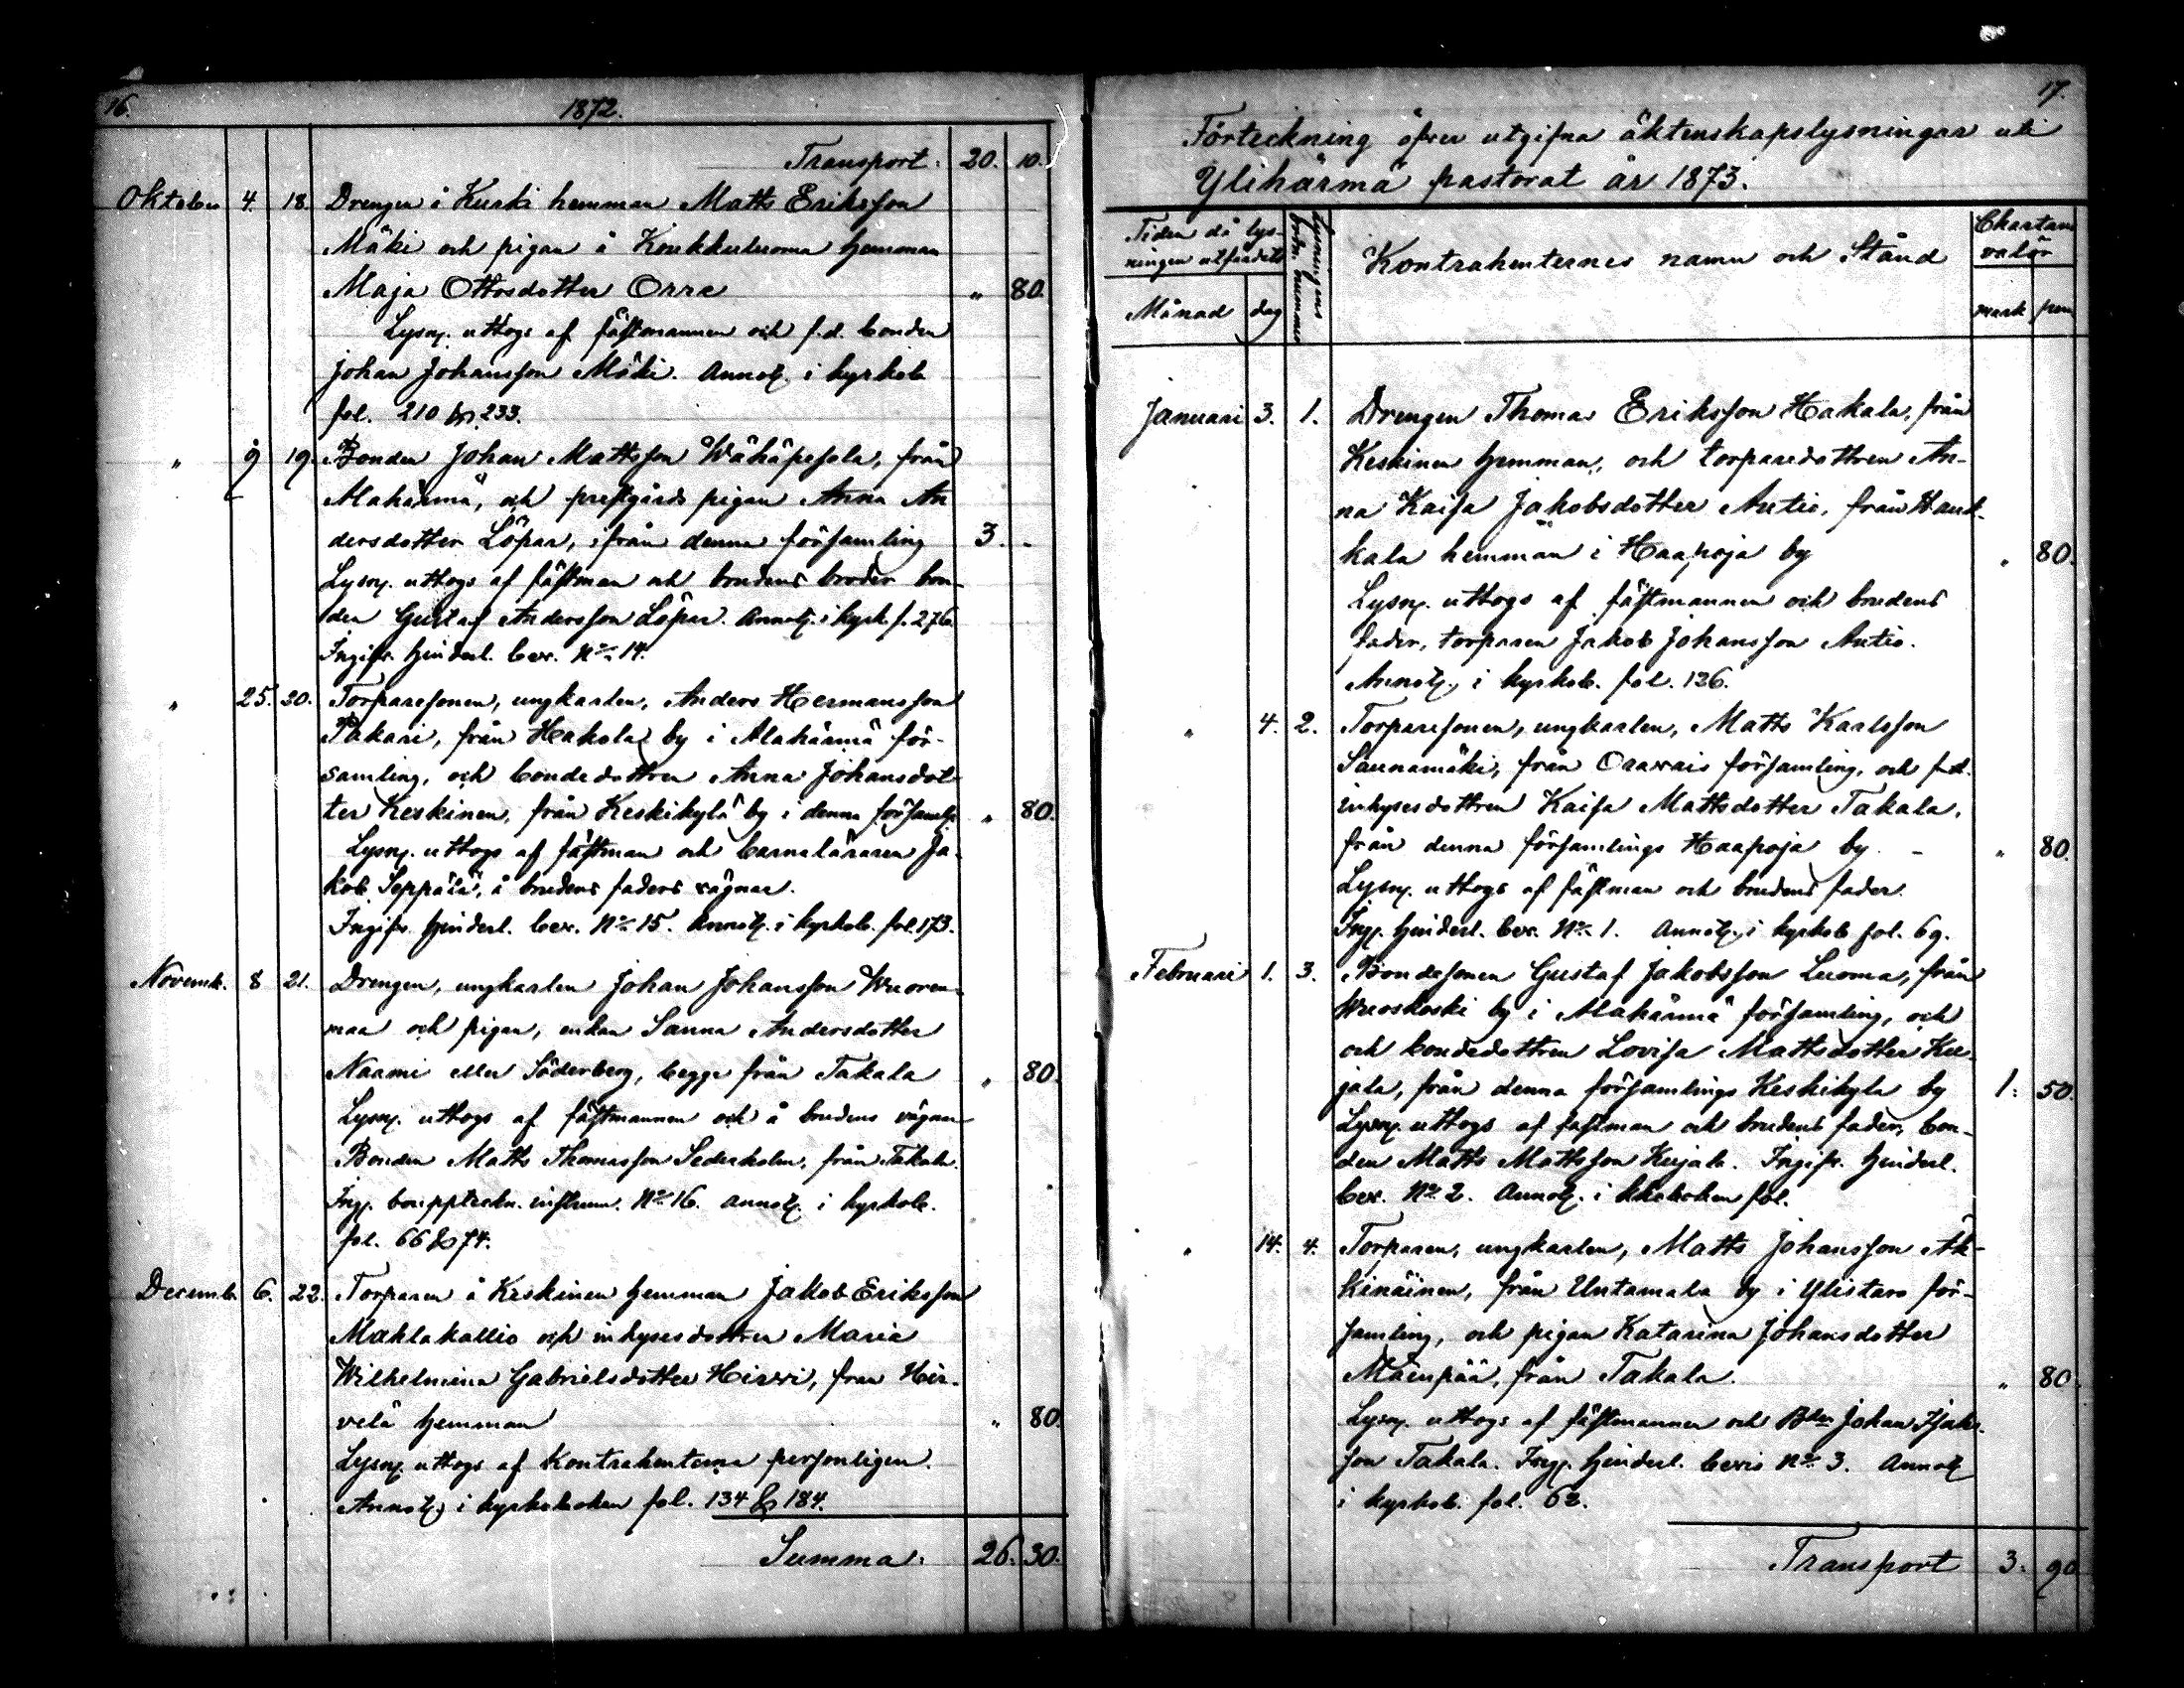 16.
1872.
Transport. 20. 10.
Oktober 4. 18. Drengen å Kurki hemman Matts Eriksson
Mäki och pigan å Koukkuluoma hemman
Maja Ottosdotter Orre " 80.
Lysn. uttogs af fästmannen och f.d. bonden
Johan Johansson Mäki. Annot. i kyrkob.
fol. 210 & 233.
" 9 19. Bonden Johan Mattsson Wähäpesola, från
Alahärmä, och prestgårds pigan Anna An
dersdotter Löpar, ifrån denna församling 3. -
Lysn. uttogs af fästman och brudens broder bon-
den Gustaf Andersson Löpar. Annot. i kyrk. f. 276.
Ingifv. hinderl. bev. No 14.
" 25. 20. Torparesonen, ungkarlen, Anders Hermansson
Pakari, från Hakola by i Alahärmä för-
samling, och bondedottren Anna Johansdot-
ter Keskinen, från Keskikylä by i denna församlg " 80.
Lysn. uttogs af fästman och barnaläraren Ja-
kob Seppälä, å brudens faders vägnar.
Ingifv. hinderl. bev. No 15. Annot. i kyrkob. fol. 173.
Novemb. 8 21. Drengen, ungkarlen Johan Johansson Wuoren-
maa och pigan, enkan Sanna Andersdotter
Naami eller Söderberg, begge från Takala " 80.
Lysn. uttogs af fästmannen och å brudens vägnar
Bonden Matts Thomasson Sederholm, från Takala.
Ing. boupptekn. instrum. No 16. annot. i kyrkob.
fol. 66 & 74.
Decemb. 6. 22. Torparen å Keskinen hemman Jakob Eriksson
Mahlakallio och inhysesdottren Maria
Wilhelmina Gabrielsdotter Hirvi, från Hir-
velä hemman " 80.
Lysn. uttogs af Kontrahenterna personligen.
Annot. i kyrkoboken fol. 134 & 184.
Summa. 26. 30.
17.
Förteckning öfver utgifna äktenskapslysningar uti
Ylihärmä pastorat år 1873.
Tiden då lys-
ningen utfärdats
Månad dag
Lysningens
Kontrahenternes namn och Stånd
Chartans
valör
mark pen
Januari 3. 1. Drengen Thomas Eriksson Hakala, från
Keskinen hemman, och torparedottren An-
na Kaisa Jakobsdotter Antio, från Hauk-
kala hemman i Haapoja by " 80.
Lysn. uttogs af fästmannen och brudens
fader, torparen Jakob Johansson Antio.
Annot. i kyrkob. fol. 126.
" 4. 2. Torparesonen, ungkarlen, Matts Karlsson
Saunamäki, från Oravais församling, och f.d.
inhysesdottren Kaisa Mattsdotter Takala,
från denna församlings Haapoja by. - " 80.
Lysn. uttogs af fästman och brudens fader.
Ing. hinderl. bev. No 1. Annot. i kyrkob fol. 69.
Februari 1. 3. Bondesonen Gustaf Jakobsson Luoma, från
Wuoskoski by i Alahärmä församling, och
och bondedottren Lovisa Mattsdotter Ku-
jala, från denna församlings Keskikylä by 1. 50.
Lysn. uttogs af fästman och brudens fader, bon-
den Matts Mattsson Kujala. Ingifv. hinderl.
bev. No 2. Annot. i kkoboken fol.
" 14. 4. Torparen, ungkarlen, Matts Johansson Äk-
kinäinen, från Untamala by i Ylistaro för-
samling, och pigan Katarina Johansdotter
Mäenpää, från Takala. " 80.
Lysn. uttogs af fästmannen och Bden Johan Isaks-
son Takala. Ing. hinderl. bevis No 3. Annot
i kyrkob. fol. 62.
Transport 3. 90